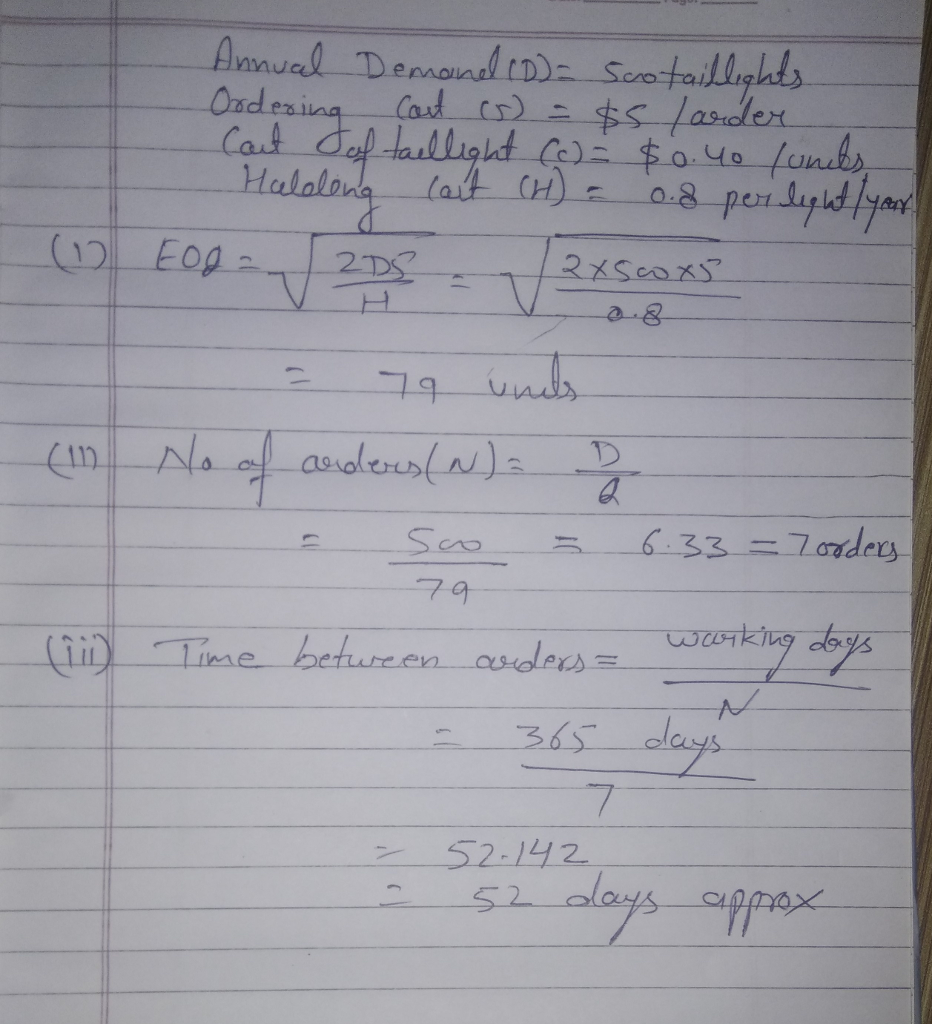 Annual Demand (D) = 500 taillights
Ordering Cost (S) = $5 /order
Cost of taillight (C) = $0.40 /units
Holding Cost (H) = 0.8 per light/year
(i) EOQ = √2DS/H = √2×500×5/0.8
= 79 units
(ii) No of orders (N) = D/Q
= 500/79 = 6.33 = 7 orders
(iii) Time between orders = working days/N
= 365 days/7
= 52.142
= 52 days approx